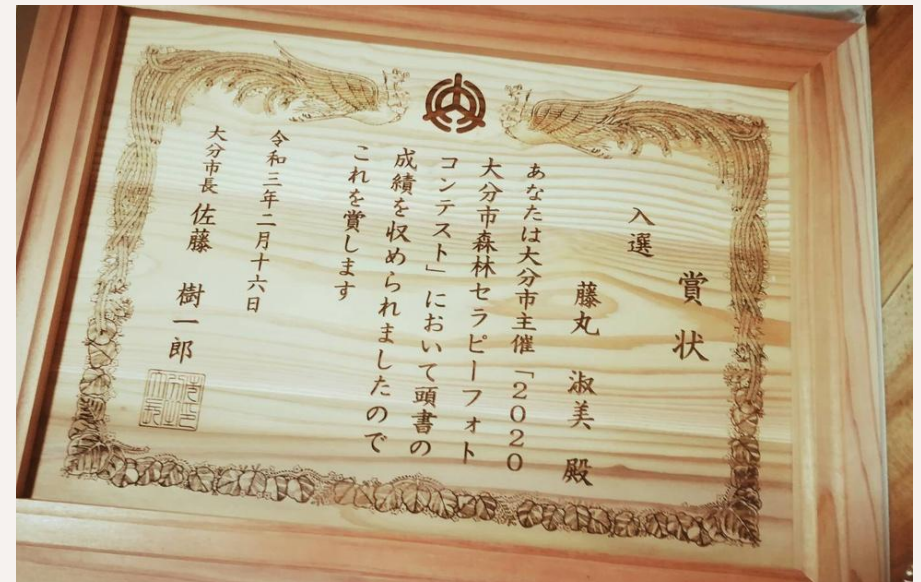 賞状
入選
藤丸 淑美 殿
あなたは大分市主催「2020
大分市森林セラピーフォト
コンテスト」において頭書の
成績を収められましたので
これを賞します
令和三年二月十六日
大分市長 佐藤 樹一郎